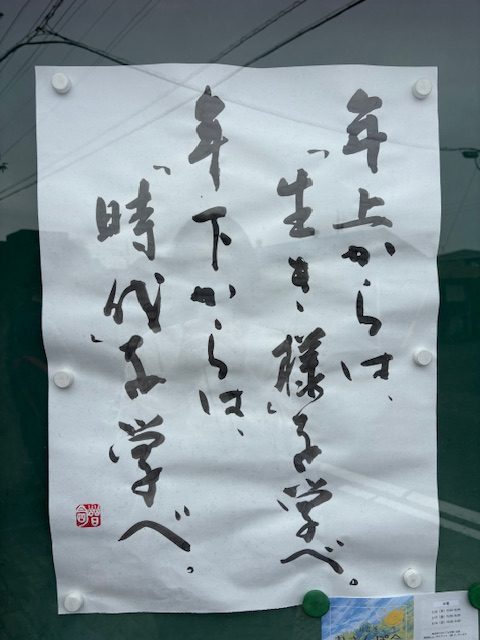 年上からは、
「生き様」を学べ。
年下からは、
「時代」を学べ。